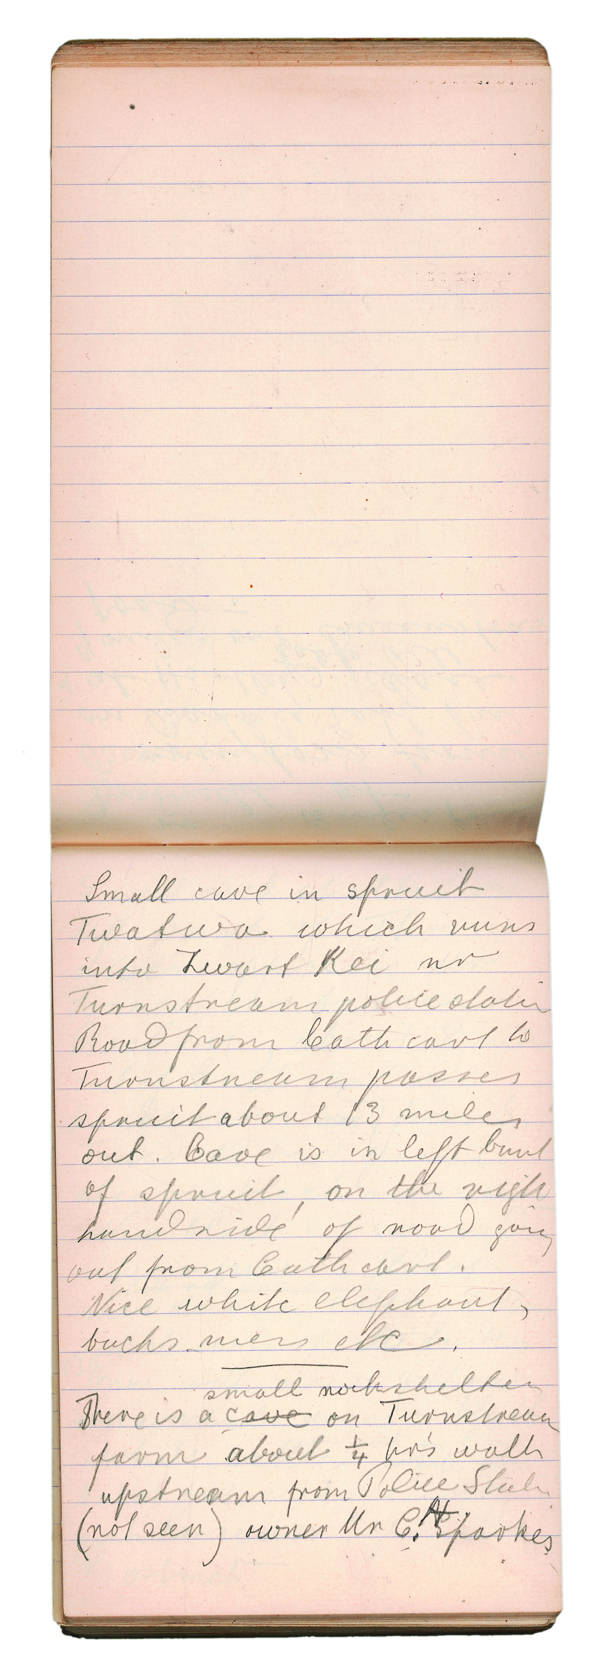 Small cave in spruit
Twatwa which runs
into Zwart Kei nr
Turnstream police statin
Road from Cathcart to
Turnstream passes
spruit about 13 miles
out. Cave is in left bank
of spruit, on the right
hand side of road going
out from Cathcart.
Nice white elephant,
bucks men etc.
small rockshelter
There is a cave on Turnstream
farm about ¼ hr's walk
upstream from Police Statn
(not seen) owner Mr C. H. Sparkes